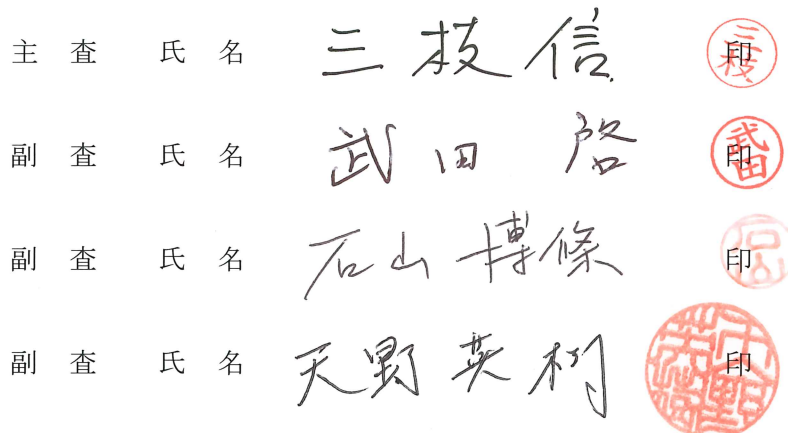 主査 氏名 三枝信 印
副査 氏名 武田 啓 印
副査 氏名 石山博條 印
副査 氏名 天野英樹 印